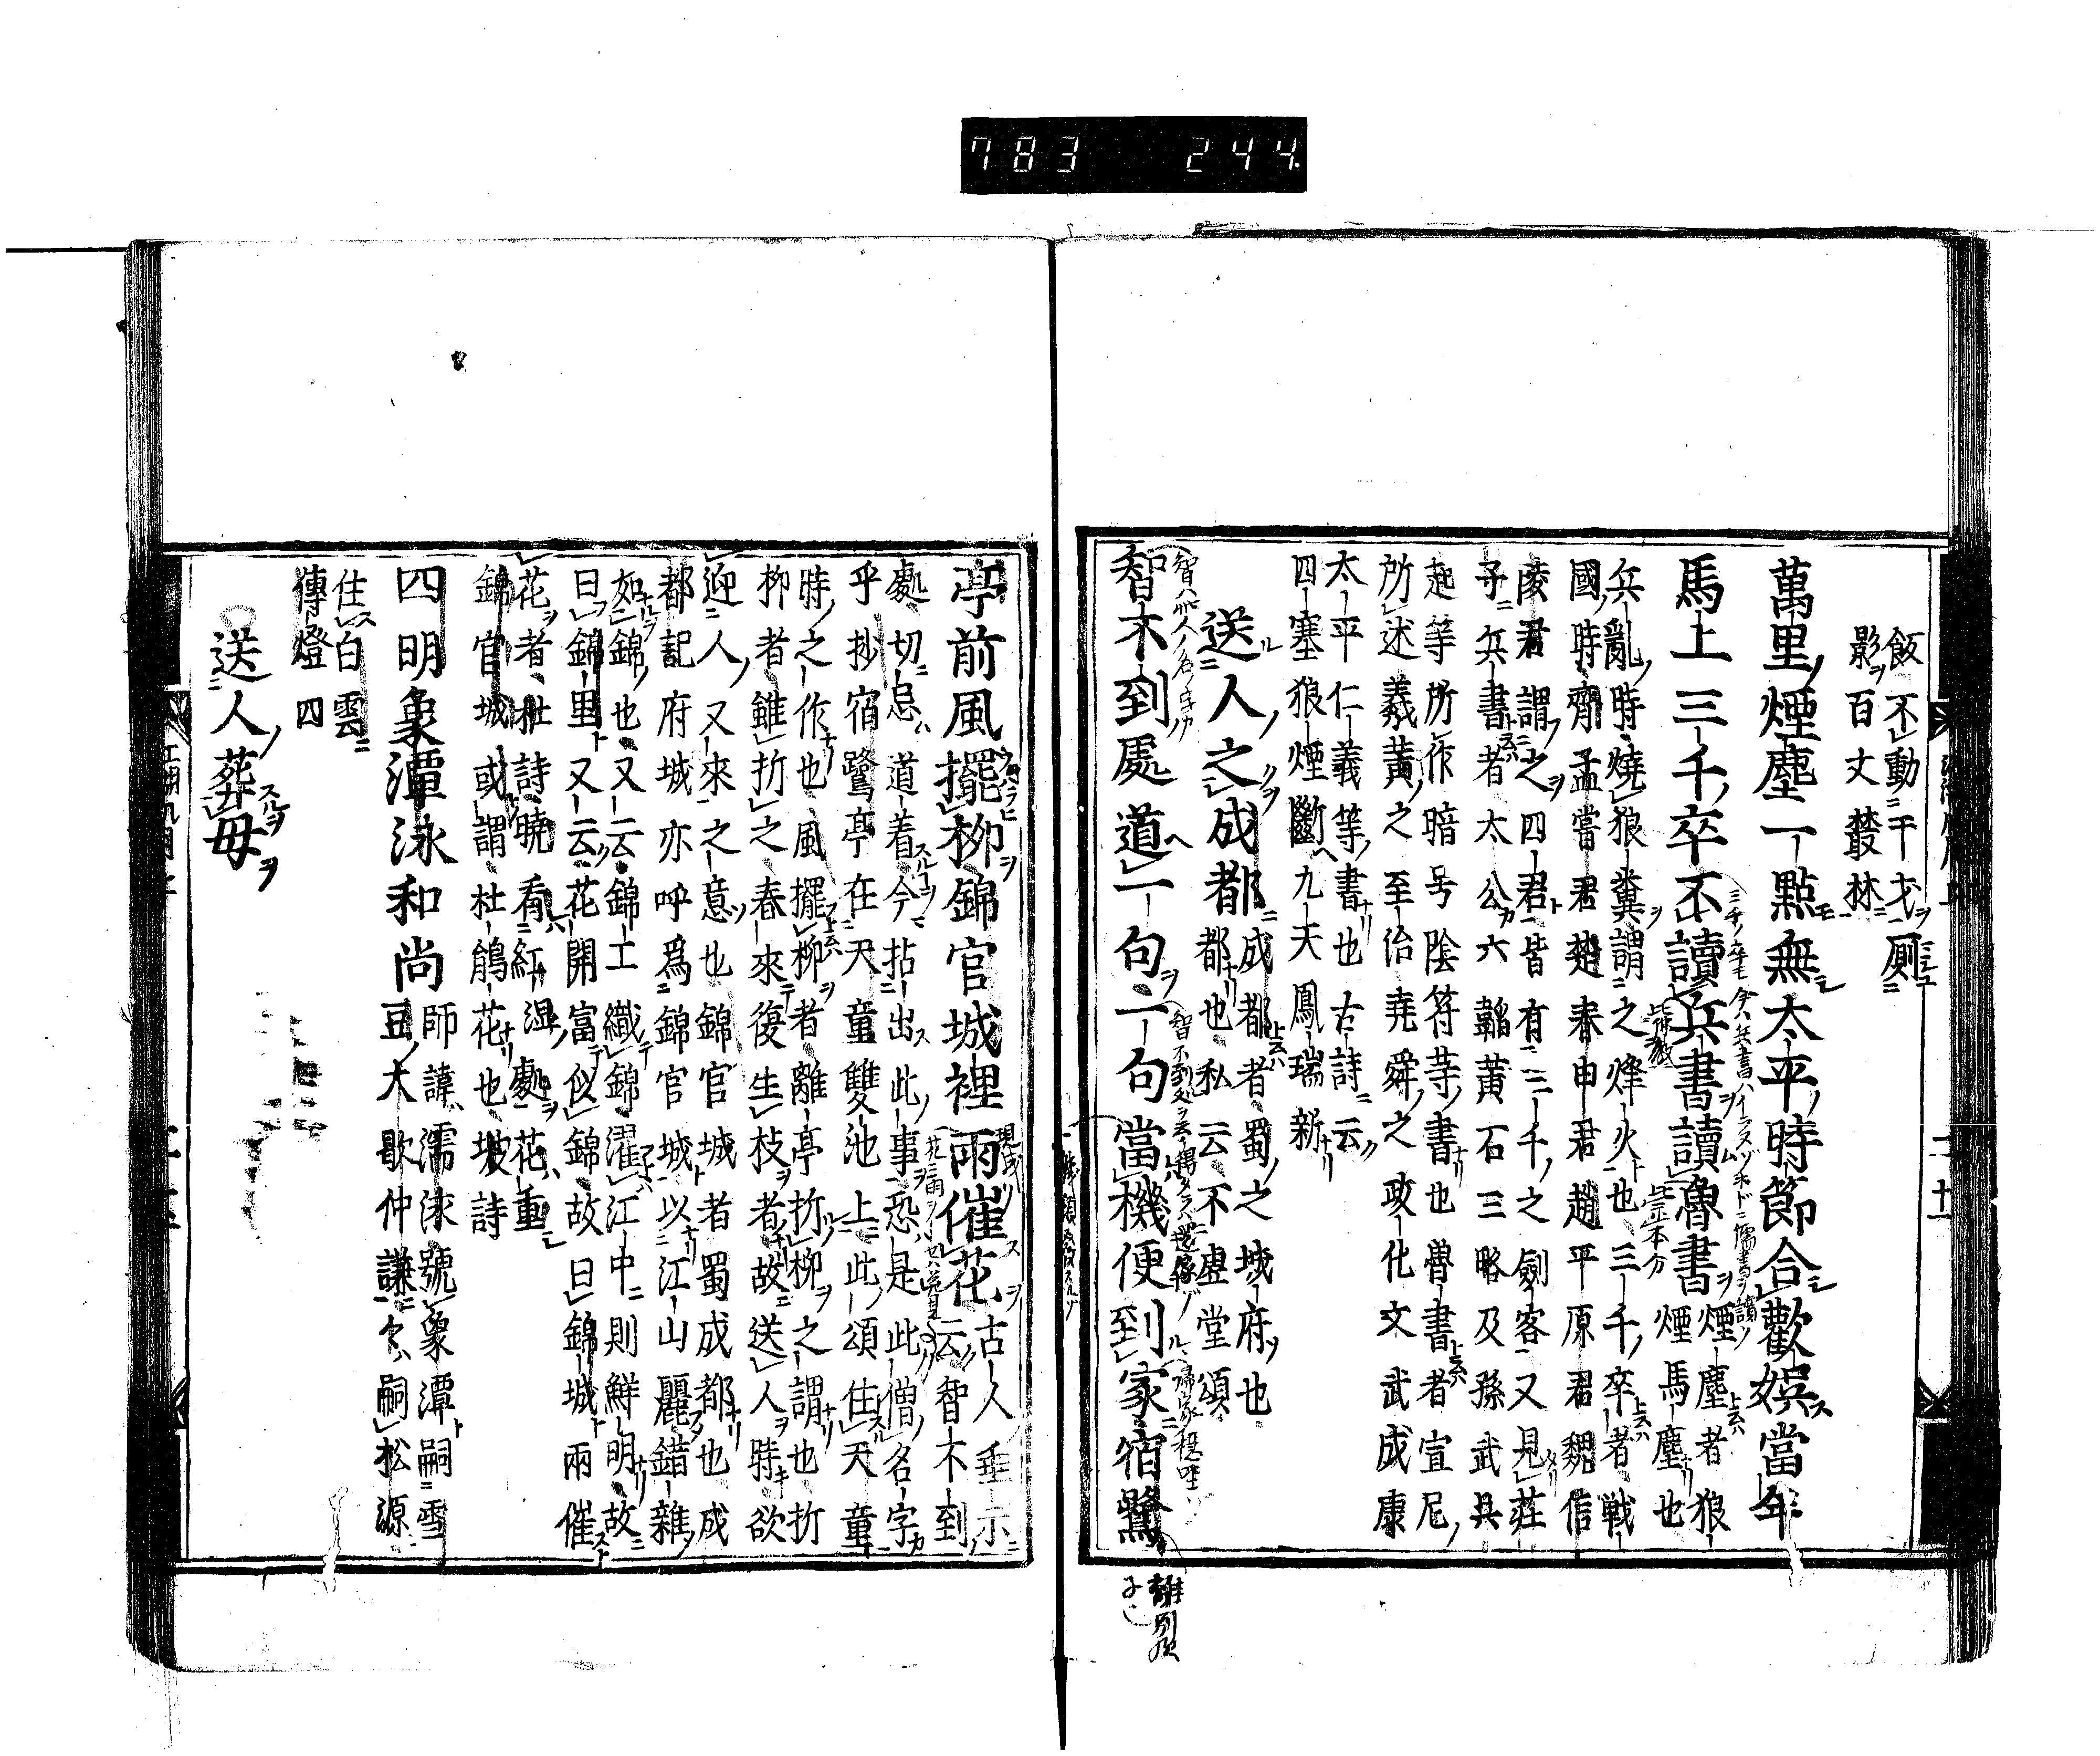 783 244.
飯不動干戈厠
影百丈叢林
萬里煙塵一點無太平時節合歡娯當年
馬上三千卒不讀兵書讀魯書
煙塵者狼
煙馬塵也
兵亂時燒狼糞謂之烽火也三千卒者戦
國時齊孟嘗君楚春申君趙平原君魏信
陵君謂之四君皆有三千之劍客又見莊
子兵書者太公六韜黃石三略及孫武具
起等所作暗号陰符等書也魯書者宣尼
所述羲黃之至治堯舜之政化文武成康
太平仁義等書也古詩云
四塞狼煙斷九天鳳瑞新
送人之成都
成都者蜀之城府也
都也私云不虚堂頌
智不到處道一句一句當機便到家宿鷺
亭前風擺柳錦官城裡雨催花
古人垂示
云智不到
處切忌道着今拈出此事恐是此僧名字
乎抄宿鷺亭在天童雙池上此頌住天童
時之作也風擺柳者離亭折柳之謂也折
柳者雖折之春來復生枝者故送人時欲
迎人又來之意也錦官城者蜀成都也成
都記府城亦呼爲錦官城以江山麗錯雜
如錦也又云錦工織錦濯江中則鮮明故
曰錦里又云花開富似錦故曰錦城雨催
花者杜詩曉看紅濕處花重
錦官城或謂杜鵑花也坡詩
四明象潭泳和尚
師諱濡泳號象潭嗣雪
豆大歇仲謙欠嗣松源
住白雲
傳燈四
送人葬母